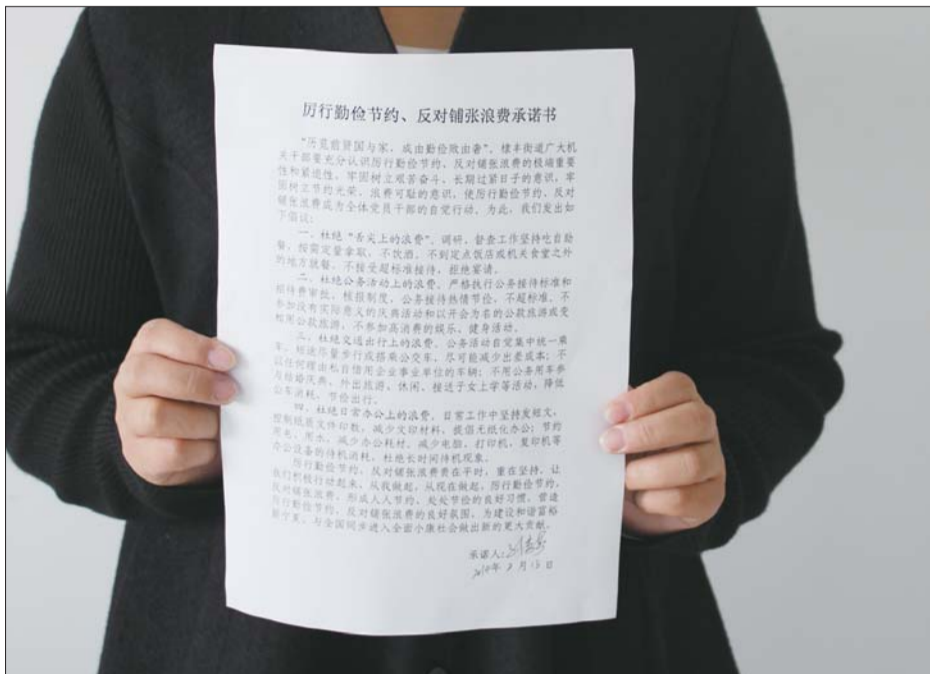 厉行勤俭节约、反对铺张浪费承诺书
“历览前贤国与家，成由勤俭败由奢”，棣丰街道广大机
关干部要充分认识厉行勤俭节约、反对铺张浪费的极端重要
性和紧迫性，牢固树立艰苦奋斗、长期过紧日子的意识，牢
固树立节约光荣、浪费可耻的意识，使厉行勤俭节约、反对
铺张浪费成为全体党员干部的自觉行动。为此，我们发出如
下倡议：
一、杜绝“舌尖上的浪费”。调研、督查工作坚持吃自助
餐，按需定量拿取，不饮酒，不到定点饭店或机关食堂之外
的地方就餐，不接受超标准接待，拒绝宴请。
二、杜绝公务活动上的浪费。严格执行公务接待标准和
招待费审批、核报制度，公务接待热情节俭，不超标准，不
参加没有实际意义的庆典活动和以开会为名的公款旅游或变
相用公款旅游，不参加高消费的娱乐、健身活动。
三、杜绝交通出行上的浪费。公务活动自觉集中统一乘
车，短途尽量步行或搭乘公交车，尽可能减少出差成本；不
以任何理由私自借用企业事业单位的车辆；不用公务用车参
与结婚庆典、外出旅游、休闲、接送子女上学等活动，降低
公车消耗，节俭出行。
四、杜绝日常办公上的浪费。日常工作中坚持发短文，
控制纸质文件印数，减少文印材料，提倡无纸化办公；节约
用电、用水，减少办公耗材，减少电脑、打印机、复印机等
办公设备的待机消耗，杜绝长时间待机现象。
厉行勤俭节约、反对铺张浪费贵在平时，重在坚持，让
我们积极行动起来，从我做起，从现在做起，厉行勤俭节约，
反对铺张浪费，形成人人节约、处处节俭的良好习惯，营造
厉行勤俭节约、反对铺张浪费的良好氛围，为建设和谐富裕
新宁夏，与全国同步进入全面小康社会做出新的更大贡献。
承诺人：
2014年 2 月 15 日